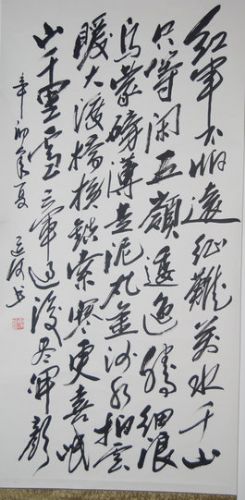 紅軍不怕遠征難萬水千山
只等闲五嶺逶迤騰細浪
烏蒙磅薄走泥丸金沙水拍雲
暖大渡橋横鉄索寒更喜岷
山千里雪三軍过後尽開颜
辛卯年夏 书